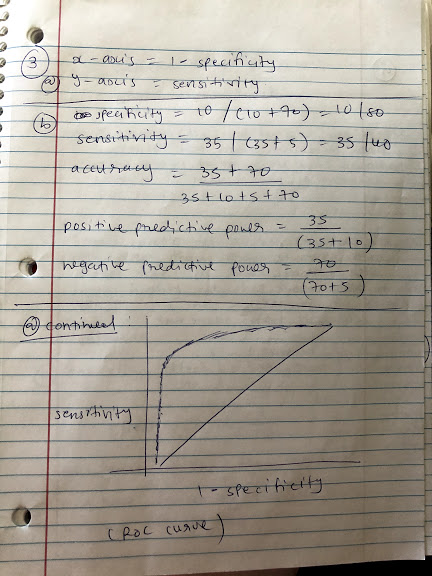 3 x-axis = 1 - specificity
a y-axis = sensitivity
b specificity = 10 / (10 + 70) = 10/80
sensitivity = 35 / (35+5) = 35/40
accuracy = 35 + 70
35+10+5+70
positive predictive power = 35
(35+10)
negative predictive power = 70
(70+5)
a continued :
sensitivity
1 - specificity
(ROC curve)